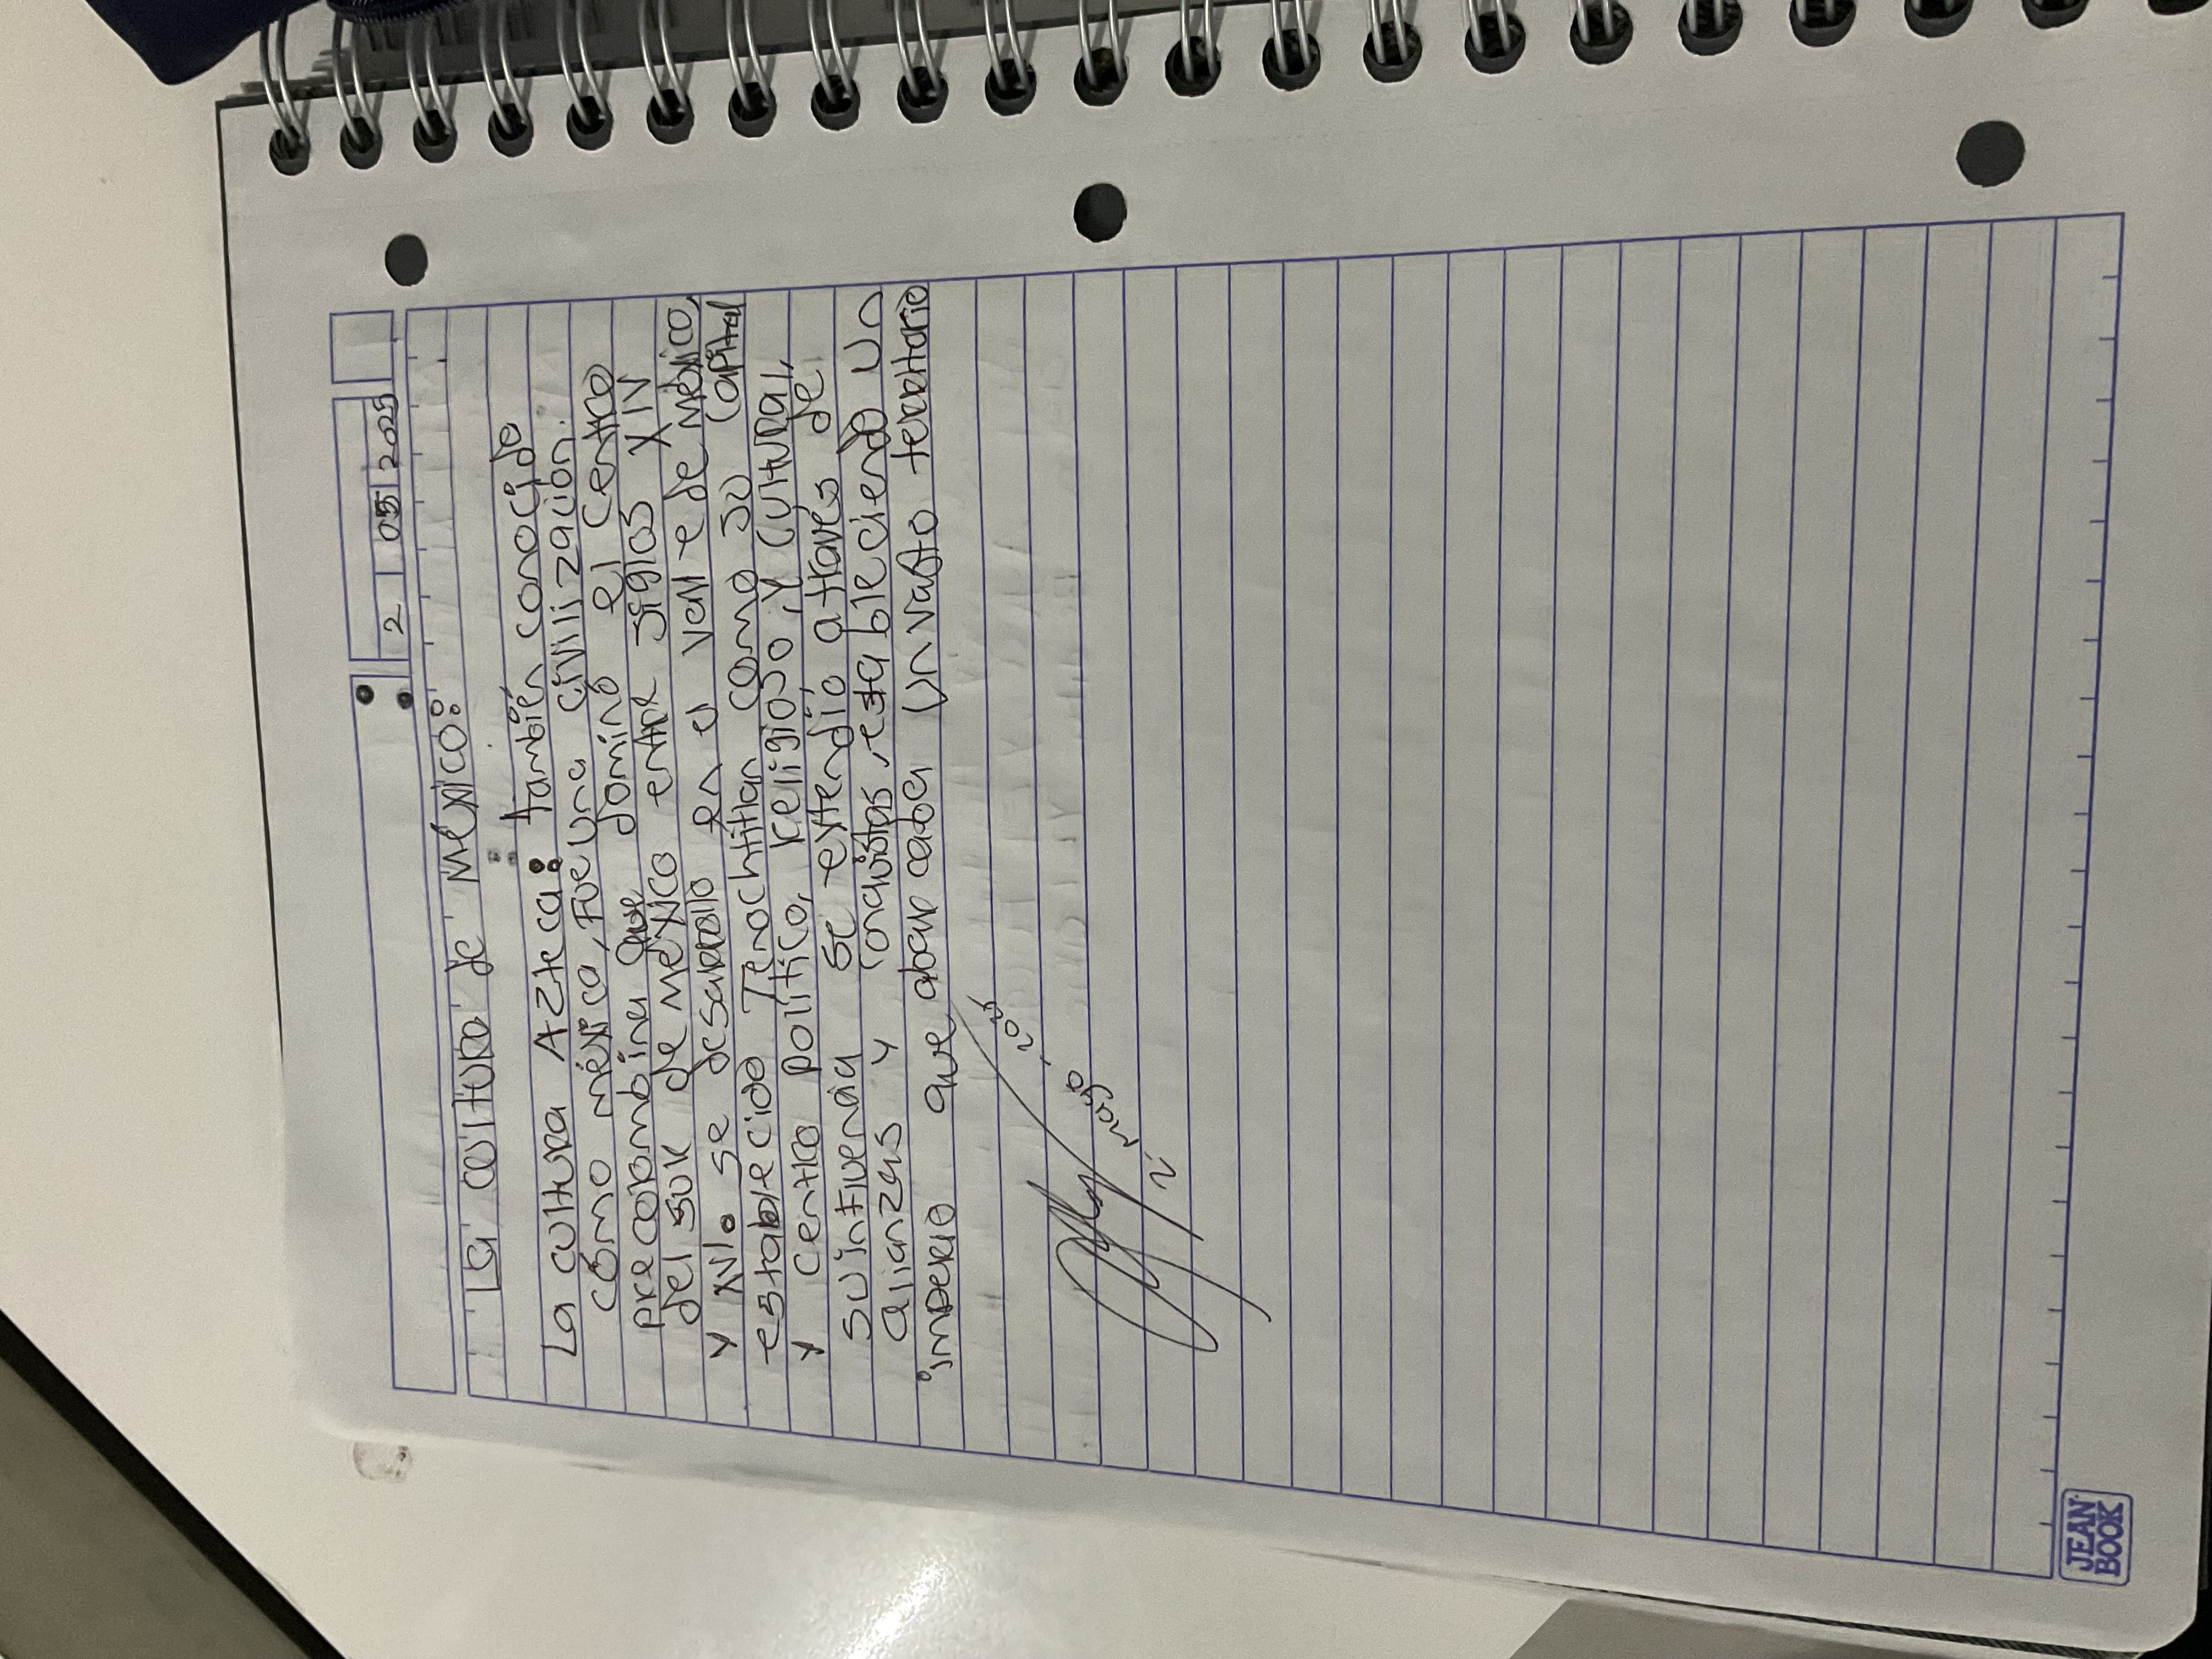 2 05 2025
La cultura de México:
La cultura Azteca: también conocido
cómo méxica, fue una civilización.
precolombina que dominó el centro
del sur de mexico entre siglos XIV
y XVI. se desarrollo en el valle de México,
establecido Tenochtitlan como su capital
y centro político, religioso, y cultural,
su influencia se extendió através de
alianzas y conquistas, estableciendo un
imperio que abarcaba un vasto territorio
2. mayo, 2025
JEAN BOOK